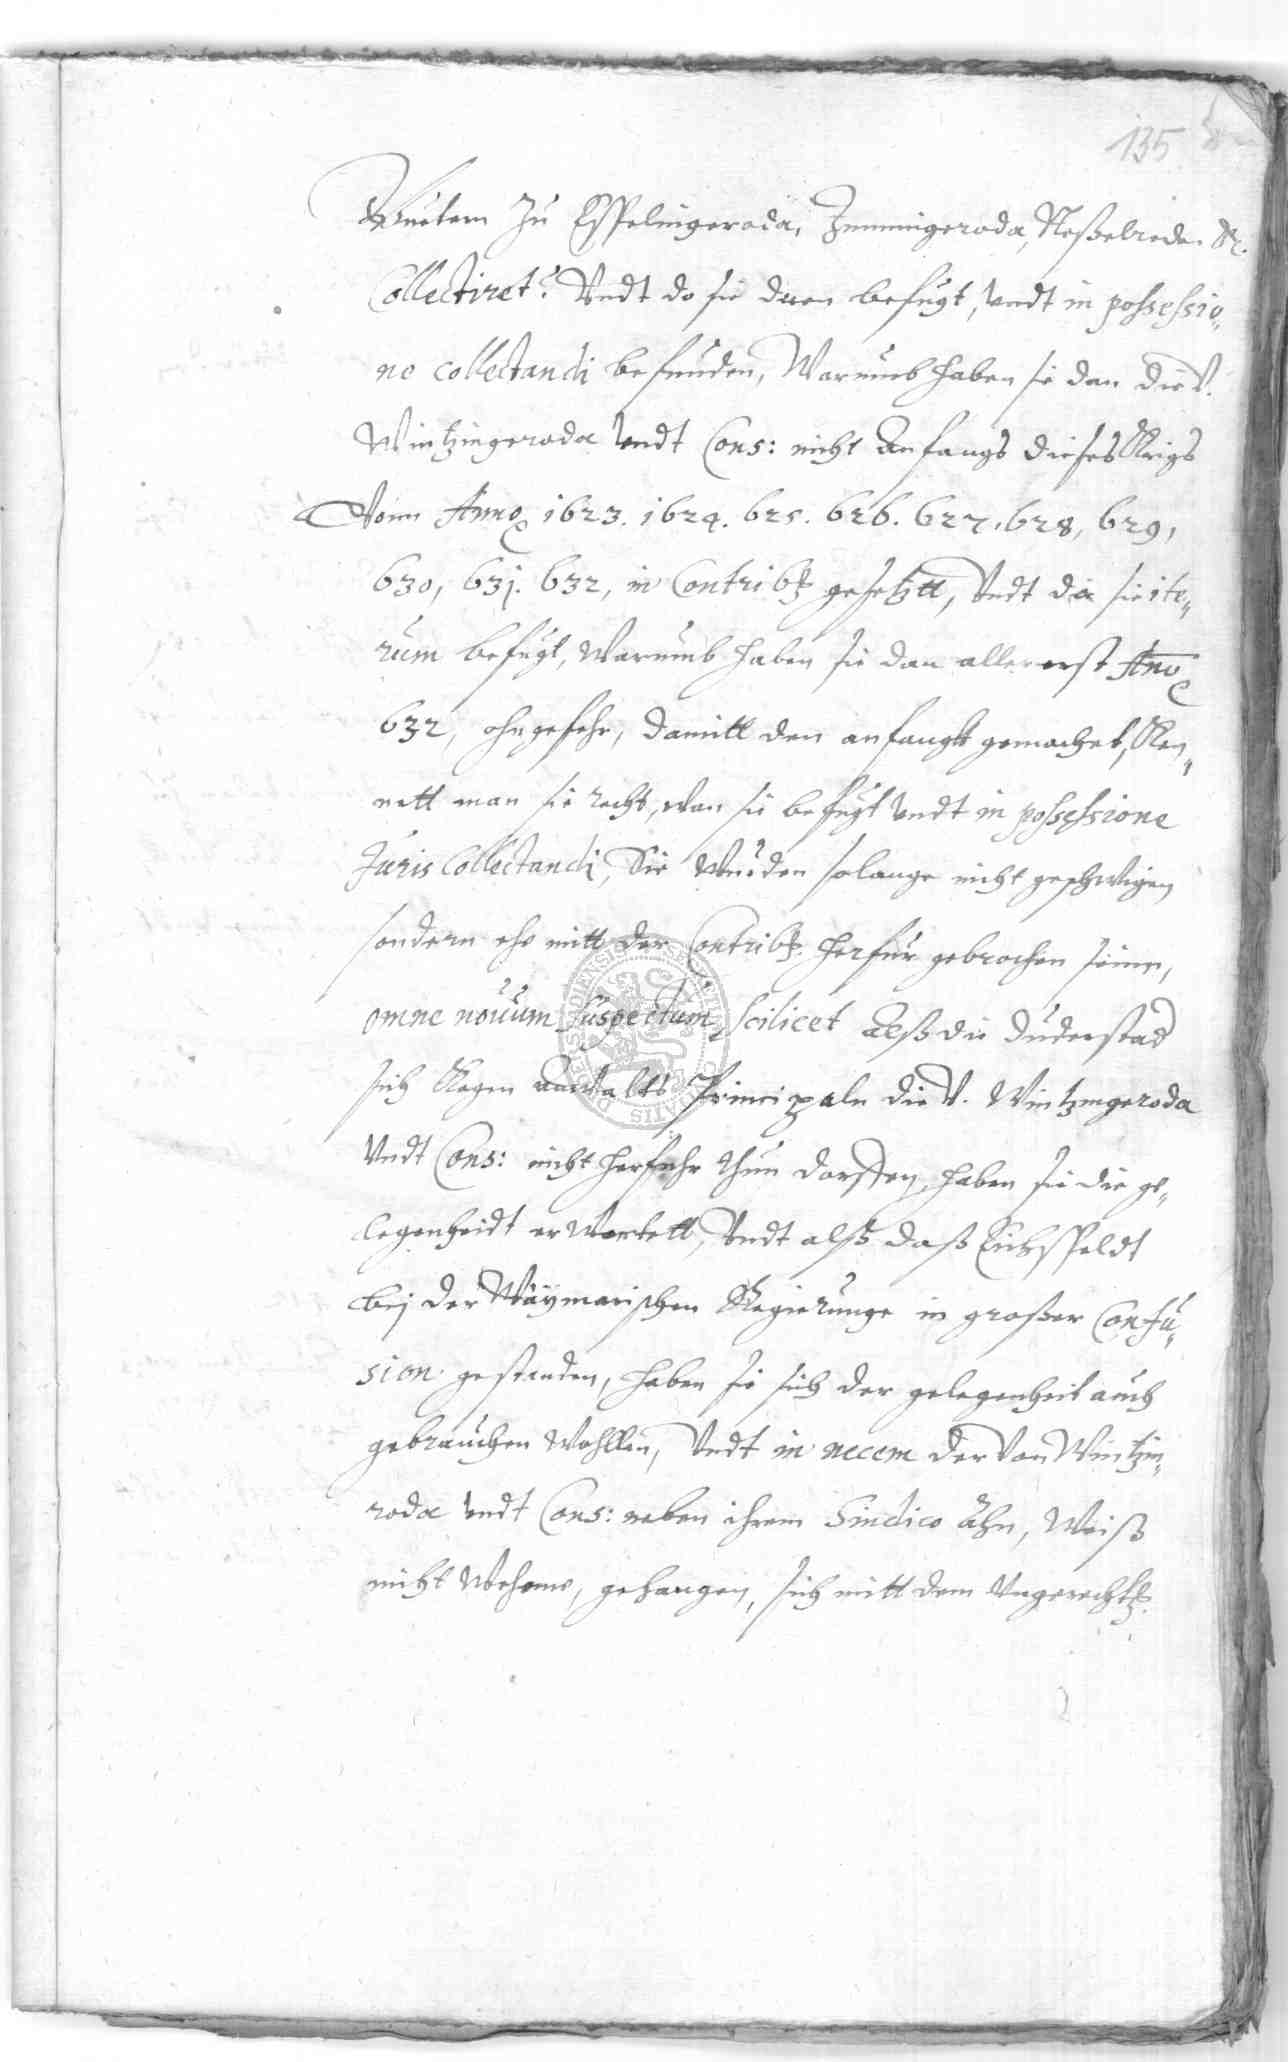 135
Guetern Zu Esplingeroda, Immingeroda, Neßelrede. &c.
Collectiret? Undt do sie deren befugt, undt in possessio-
ne collectandi befunden, Warumb haben sie dan die V.
Wintzingeroda Undt Cons: nicht Anfangs dieses Krigs
Vonn Anno 1623. 1624. 625. 626. 627, 628, 629,
630, 631. 632, in Contrib. gesetztt, Undt da sie ite-
rum befugt, Warumb haben sie dan allererst Ano
632, ohngefehr, damitt den anfangk gemachet, Ken-
nett man sie recht, wan sie befugt Undt in possessione
Juris Collectandi, Sie Würden solange nicht geschwigen
sondern ehe mitt der Contrib. herfür gebrochen seinn,
omne novum suspectum, scilicet Alß die Duderstad
sich Kegen Anwalts Principaln die V. Wintzingeroda
Undt Cons: nicht herfuhr thun dorffen, haben sie die ge-
legenheidt erwartett, Undt alß daß Eichsfeldt
bej der Waymarischen Regierunge in großer Confu-
sion gestanden, haben sie sich der gelegenheit auch
gebrauchen Wohllen, Undt in necem der Von Wintzin-
roda Undt Cons: neben ihrem Sindico ahn, Weiß
nicht Wehme, gehangen, sich mitt dem Ungerecht.
SIGILLUM CIVITATIS DUDERSTADIENSIS SECRETUM